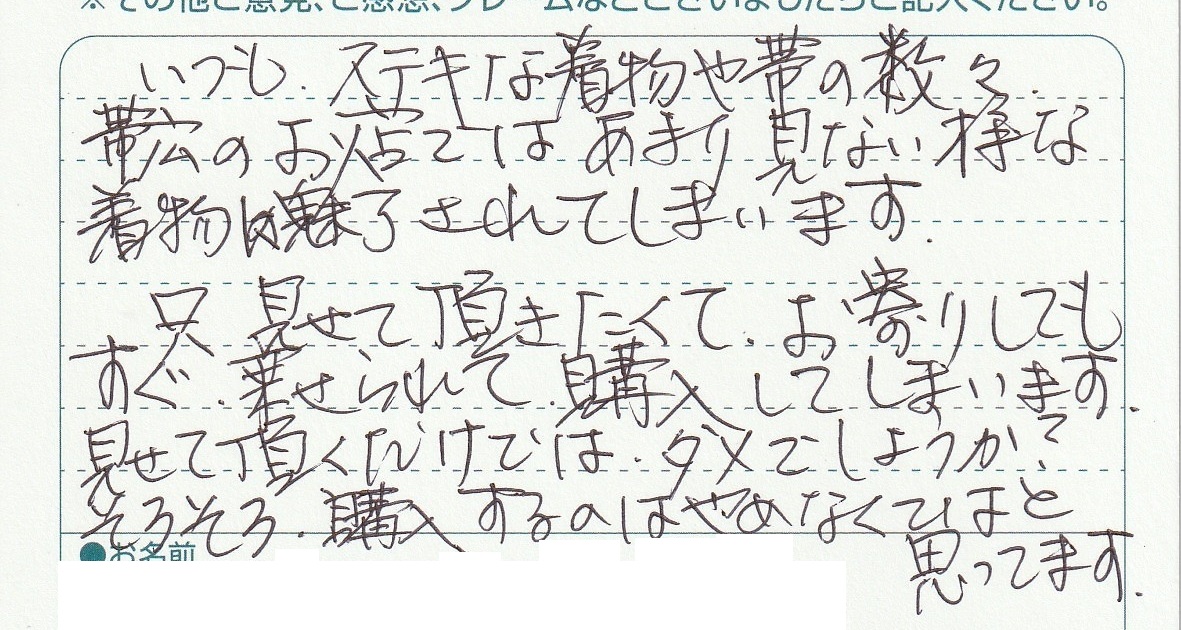 ※その他ご意見、ご感想、クレームなどございましたらご記入ください。
いつも、ステキな着物や帯の数々、
帯広のお店ではあまり見ない様な
着物に魅了されてしまいます。
只、見せて頂きたくて、お寄りしても
すぐ、乗せられて、購入してしまいます。
見せて頂くだけでは、ダメでしょうか?
そろそろ、購入するのはやめなくてはと
思ってます。
●お名前